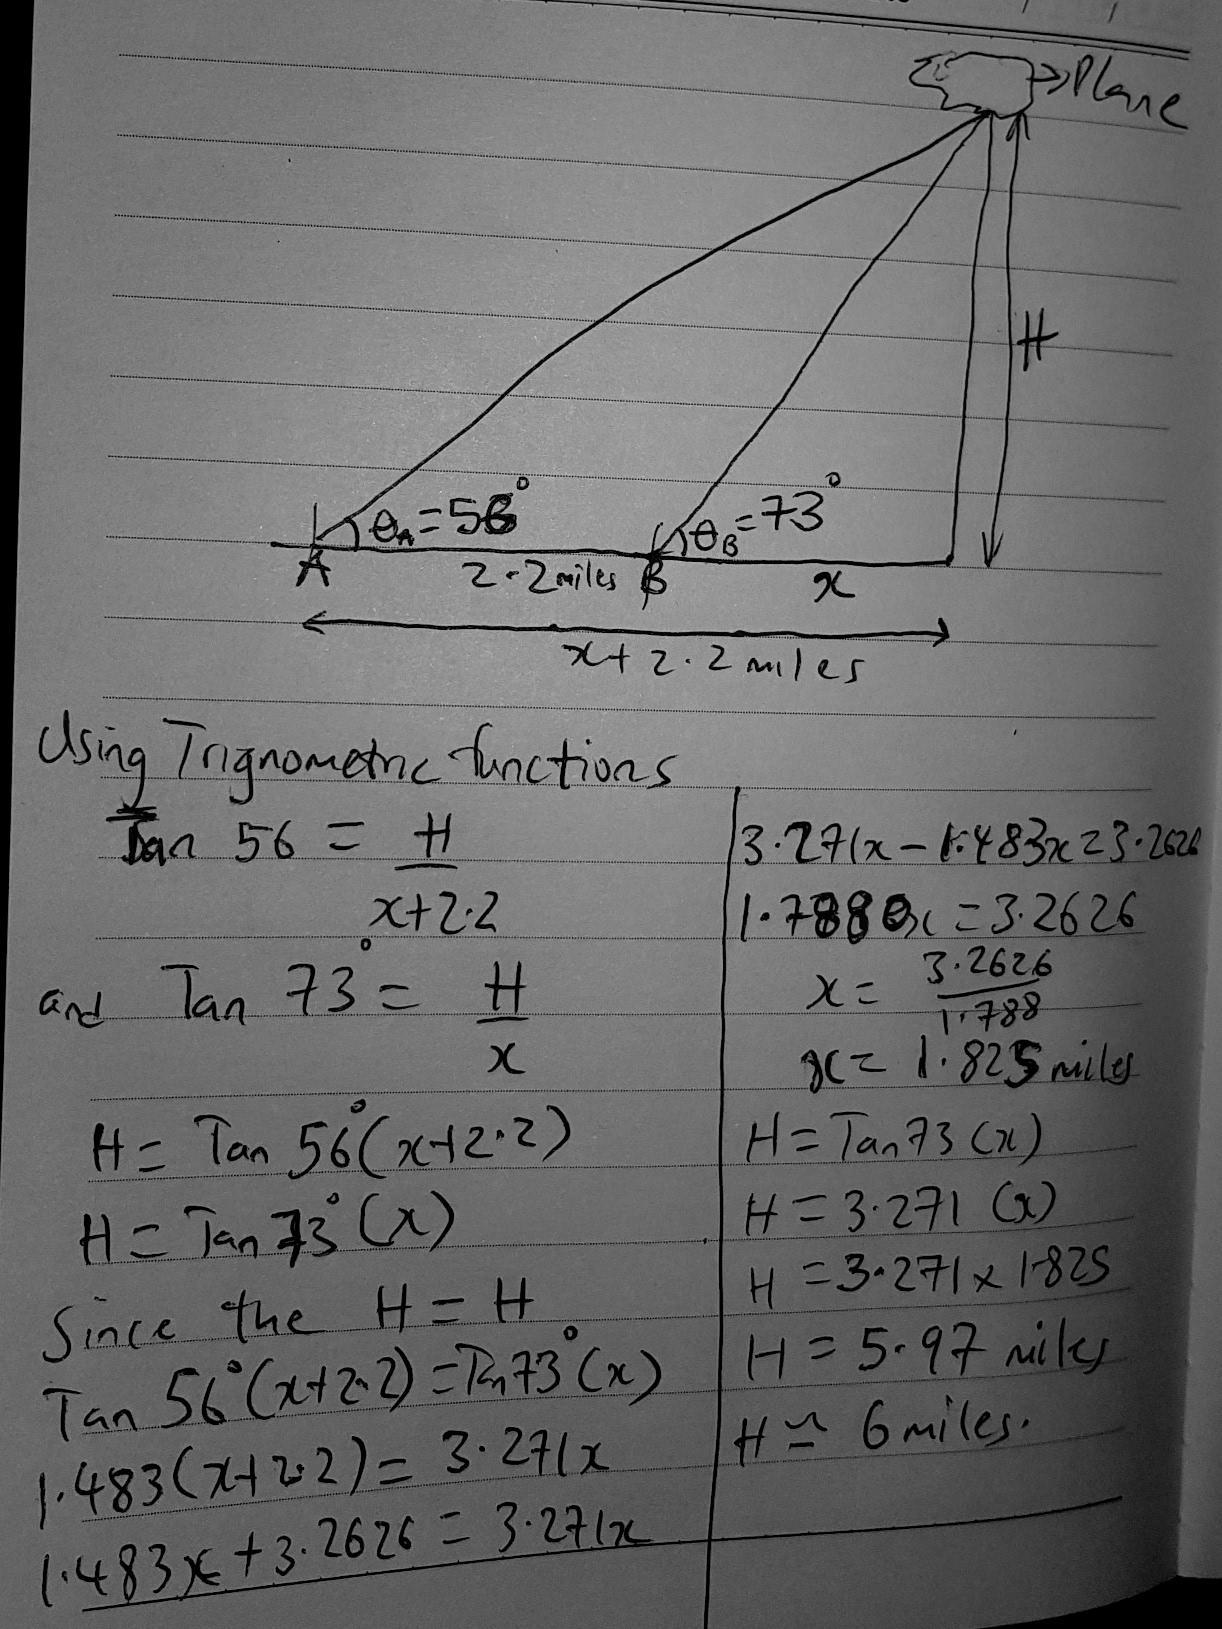 →Plane
H
θA=56°
θB=73°
A
2.2miles
B
x
x+2.2 miles
Using Trignometric functions
Tan 56 = H
x+2.2
and Tan 73° = H
x
H = Tan 56°(x+2.2)
H = Tan 73°(x)
Since the H = H
Tan 56°(x+2.2) = Tan 73°(x)
1.483(x+2.2) = 3.271x
1.483x + 3.2626 = 3.271x
3.271x - 1.483x = 3.2626
1.788x = 3.2626
x = 3.2626
1.788
x = 1.825 miles
H = Tan 73 (x)
H = 3.271 (x)
H = 3.271 x 1.825
H = 5.97 miles
H ≃ 6 miles.